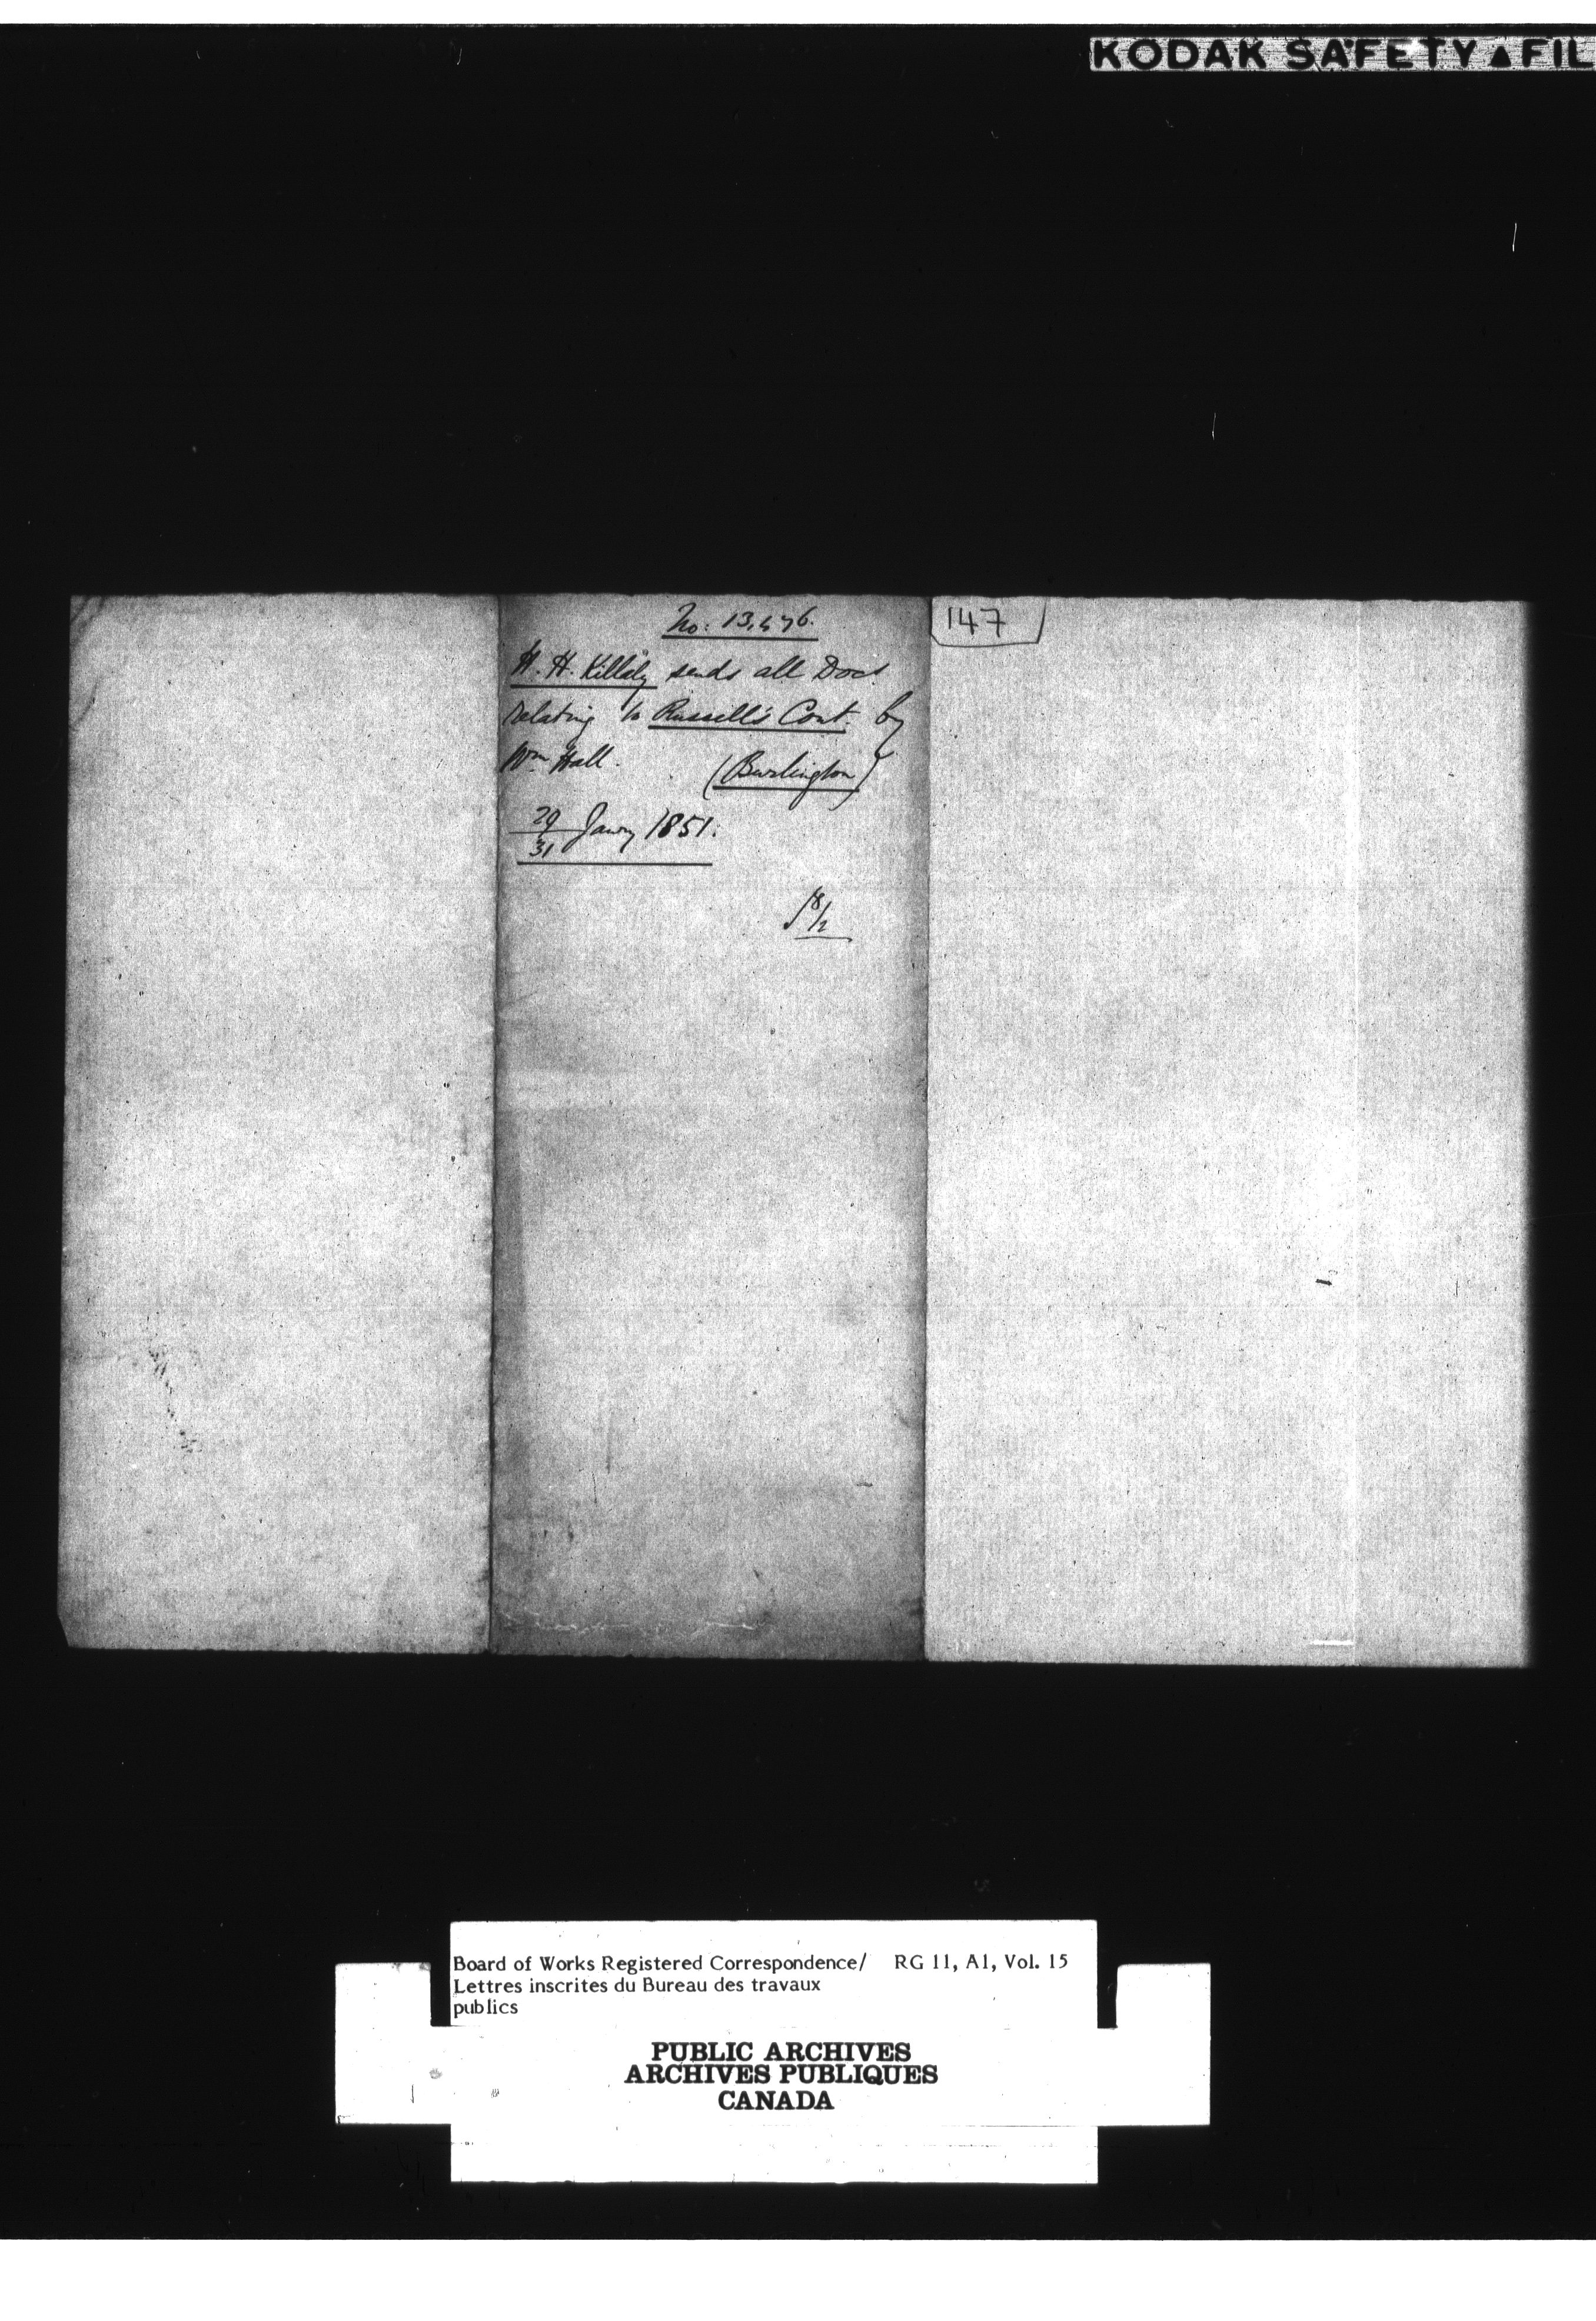 KODAK SAFETY ▲ FIL
147
No: 13,476.
H. H. Killaly sends all Docs
relating to Russell's Cont. by
Wm Hall. (Burlington)
29/31 Jany 1851.
Board of Works Registered Correspondence/ RG 11, A1, Vol. 15
Lettres inscrites du Bureau des travaux
publics
PUBLIC ARCHIVES
ARCHIVES PUBLIQUES
CANADA